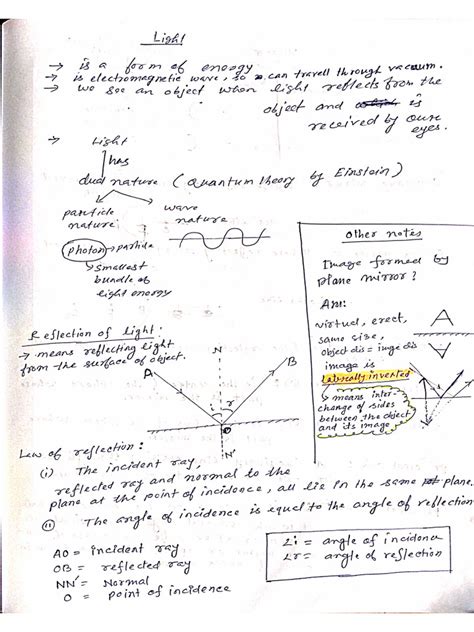 Light
→ is a form of energy
→ is electromagnetic wave, so can travell through vaccum.
→ we see an object when light reflects from the
object and is
received by our
eyes.
→ Light
has
dual nature (Quantum theory by Einstein)
particle
nature
wave
nature
photon → particle
smallest
bundle of
light energy
Other notes
Image formed by
plane mirror?
Ans:
virtuel, erect,
same size,
object dis = imge dis
image is
laterally inverted
→ means inter-
change of sides
between the object
and its image
Reflection of light:
→ means reflecting light
from the surface of object.
A
N
B
i
r
O
N'
Law of reflection:
(i) The incident ray,
reflected ray and normal to the
plane at the point of incidence, all lie in the same plane.
(ii) The angle of incidence is equal to the angle of reflection
AO = incident ray
OB = reflected ray
NN' = Normal
O = point of incidence
∠i = angle of incidence
∠r = angle of reflection